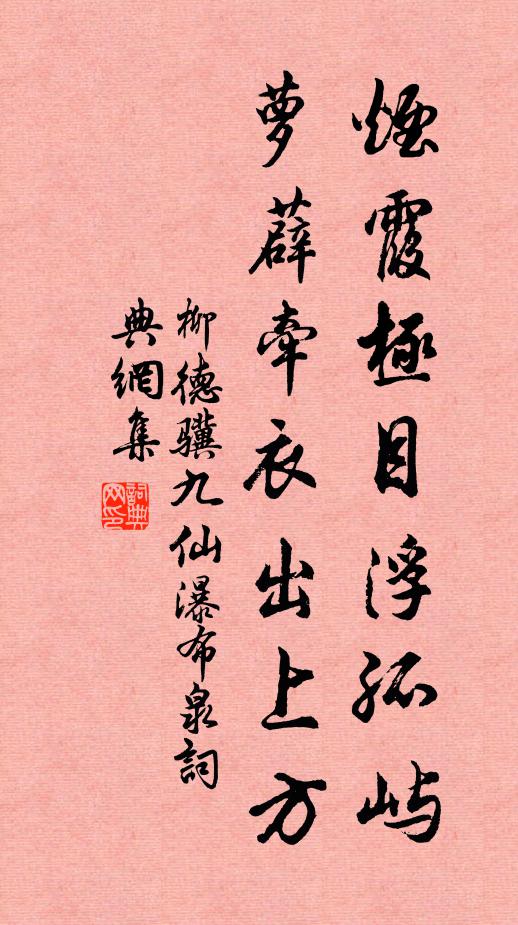 煙霞極目浮孤嶼
萝薜牽衣出上方
柳德骥九仙瀑布泉詞
典網集
詞典網印